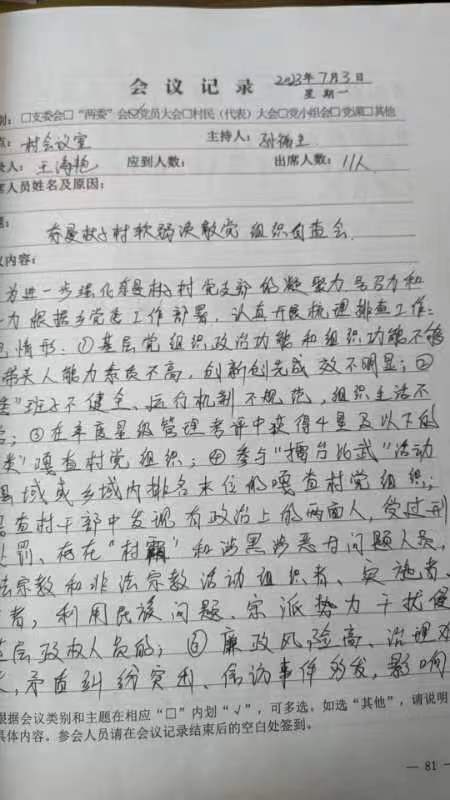 会议记录 2023年7月3日
星期一
别：□支委会□“两委”会☑党员大会□村民（代表）大会□党小组会□党课□其他
点：村会议室 主持人：孙
录人：王海艳 应到人数： 出席人数：11人
席人员姓名及原因：
题：
村软弱涣散党组织自查会
议内容：
为进一步强化 村党支部的凝聚力号召力和
力根据乡党委工作部署，认真开展梳理排查工作：
情形：①基层党组织政治功能和组织功能不够
带头人能力素质不高，创新创先成效不明显；②
班子不健全、运行机制不规范，组织生活不
；③在年度星级管理考评中获得4星及以下的
类”嘎查村党组织；④参与“擂台比武”活动
县域或乡域内排名末位的嘎查村党组织；
查村干部中发现有政治上的两面人，受过刑
罚、存在“村霸”和涉黑涉恶等问题人员，
法宗教和非法宗教活动组织者、实施者、
者，利用民族问题、宗派势力干扰侵
基层政权人员的；⑥廉政风险高、治理难
，矛盾纠纷突利、信访事件多发，影响
根据会议类别和主题在相应“□”内划“√”，可多选，如选“其他”，请说明
具体内容。参会人员请在会议记录结束后的空白处签到。
— 81 —